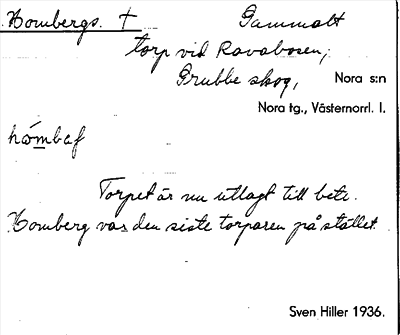 Hombergs. † Gammalt
torp vid Ravabosen,
Grubbe skog, Nora s:n
Nora tg., Västernorrl. l.
hómbaf
Torpet är nu utlagt till bete.
Homberg var den siste torparen på stället.
Sven Hiller 1936.